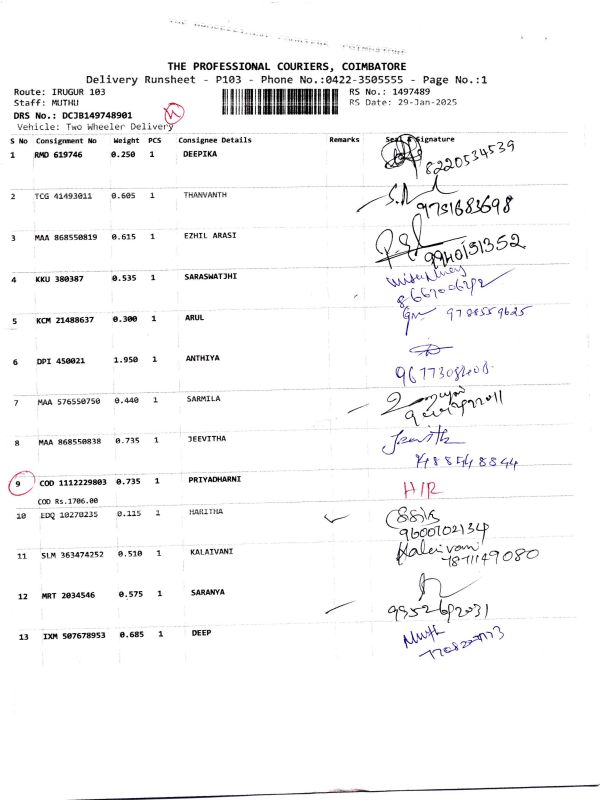 THE PROFESSIONAL COURIERS, COIMBATORE
Delivery Runsheet - P103 - Phone No.:0422-3505555 - Page No.:1
Route: IRUGUR 103 RS No.: 1497489
Staff: MUTHU RS Date: 29-Jan-2025
DRS No.: DCJB149748901
Vehicle: Two Wheeler Delivery
S No Consignment No Weight PCS Consignee Details Remarks Seal & Signature
1 RMD 619746 0.250 1 DEEPIKA
8220534539
2 TCG 41493011 0.605 1 THANVANTH
9751683698
3 MAA 868550819 0.615 1 EZHIL ARASI
9940151352
4 KKU 380387 0.535 1 SARASWATJHI
5 KCM 21488637 0.300 1 ARUL 9788559625
6 DPI 450021 1.950 1 ANTHIYA
7 MAA 576550750 0.440 1 SARMILA
8 MAA 868550838 0.735 1 JEEVITHA
9 COD 1112229803 0.735 1 PRIYADHARNI H/R
COD Rs.1706.00
10 EDQ 10270235 0.115 1 HARITHA
9600702134
11 SLM 363474252 0.510 1 KALAIVANI Kalaivani
7871149080
12 MRT 2034546 0.575 1 SARANYA
9952692031
13 IXM 507678953 0.685 1 DEEP